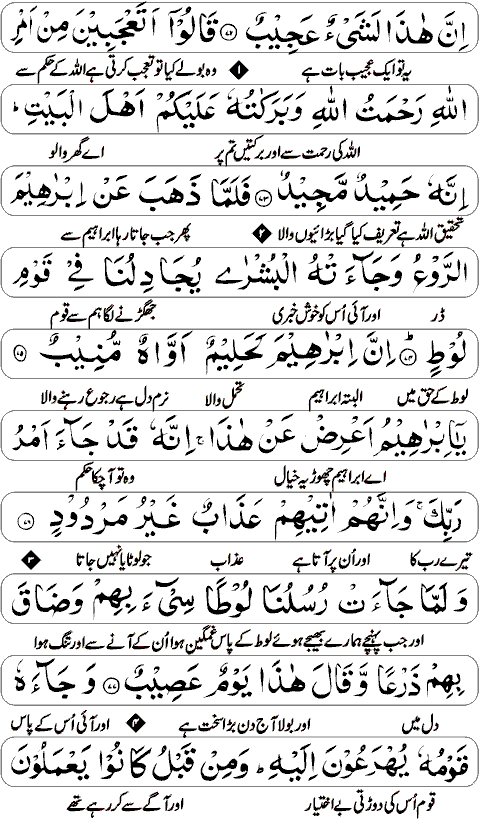 اِنَّ هٰذَا لَشَیْءٌ عَجِیْبٌ ۝۷۲ قَالُوْۤا اَتَعْجَبِیْنَ مِنْ اَمْرِ
یہ تو ایک عجیب بات ہے ۱ وہ بولے کیا تو تعجب کرتی ہے اللہ کے حکم سے
اللّٰهِ رَحْمَتُ اللّٰهِ وَبَرَكٰتُهٗ عَلَیْكُمْ اَهْلَ الْبَیْتِ ؕ
اللہ کی رحمت ہے اور برکتیں تم پر اے گھر والو
اِنَّهٗ حَمِیْدٌ مَّجِیْدٌ ۝۷۳ فَلَمَّا ذَهَبَ عَنْ اِبْرٰهِیْمَ
تحقیق اللہ ہے تعریف کیا گیا بڑائیوں والا ۲ پھر جب جاتا رہا ابراہیم سے
الرَّوْعُ وَجَآءَتْهُ الْبُشْرٰی یُجَادِلُنَا فِیْ قَوْمِ
ڈر اور آئی اُس کو خوش خبری جھگڑنے لگا ہم سے قوم
لُوْطٍ ؕ۝۷۴ اِنَّ اِبْرٰهِیْمَ لَحَلِیْمٌ اَوَّاهٌ مُّنِیْبٌ ۝۷۵
لوط کے حق میں البتہ ابراہیم تحمل والا نرم دل ہے رجوع رہنے والا
یٰۤاِبْرٰهِیْمُ اَعْرِضْ عَنْ هٰذَا ۚ اِنَّهٗ قَدْ جَآءَ اَمْرُ
اے ابراہیم چھوڑ یہ خیال وہ تو آ چکا حکم
رَبِّكَ ۚ وَاِنَّهُمْ اٰتِیْهِمْ عَذَابٌ غَیْرُ مَرْدُوْدٍ ۝۷۶
تیرے رب کا اور اُن پر آتا ہے عذاب جو لوٹایا نہیں جاتا ۳
وَلَمَّا جَآءَتْ رُسُلُنَا لُوْطًا سِیْٓءَ بِهِمْ وَضَاقَ
اور جب پہنچے ہمارے بھیجے ہوئے لوط کے پاس غمگین ہوا اُن کے آنے سے اور تنگ ہوا
بِهِمْ ذَرْعًا وَّقَالَ هٰذَا یَوْمٌ عَصِیْبٌ ۝۷۷ وَجَآءَهٗ
دل میں اور بولا آج دن بڑا سخت ہے ۴ اور آئی اُس کے پاس
قَوْمُهٗ یُهْرَعُوْنَ اِلَیْهِ ؕ وَمِنْ قَبْلُ كَانُوْا یَعْمَلُوْنَ
قوم اُس کی دوڑتی بے اختیار اور آگے سے کر رہے تھے